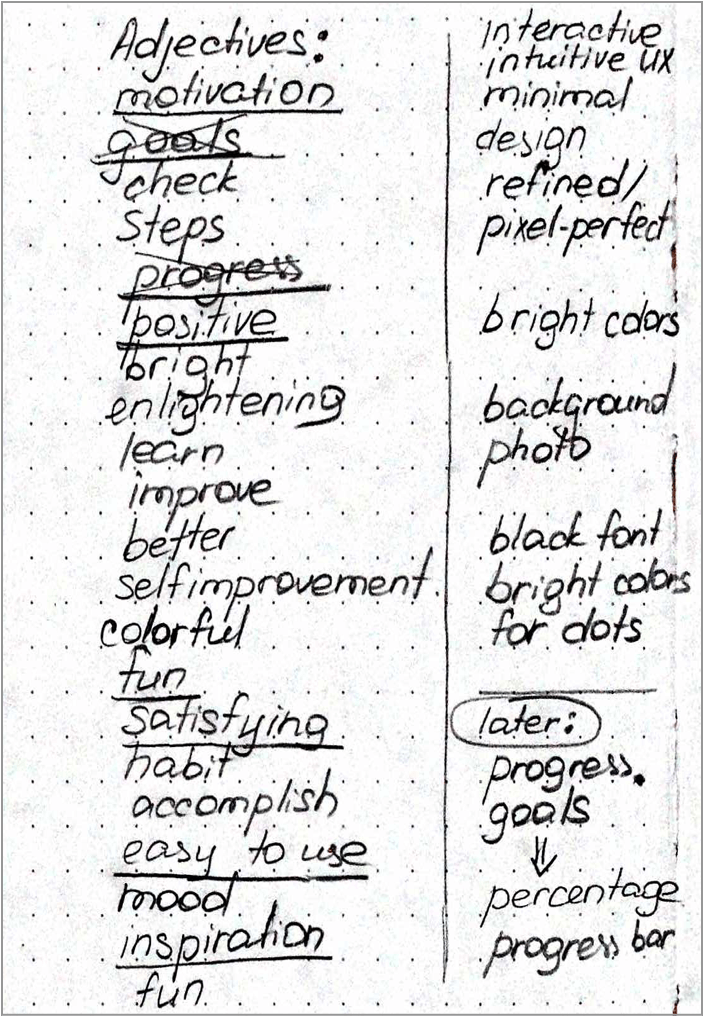 Adjectives:
motivation
goals
check
Steps
progress
positive
bright
enlightening
learn
improve
better
selfimprovement.
colorful
fun
Satisfying
habit
accomplish
easy to use
mood
inspiration
fun
interactive
intuitive UX
minimal
design
refined/
pixel-perfect
bright colors
background
photo
black font
bright colors
for dots
later:
progress.
goals
⇓
percentage
progress bar